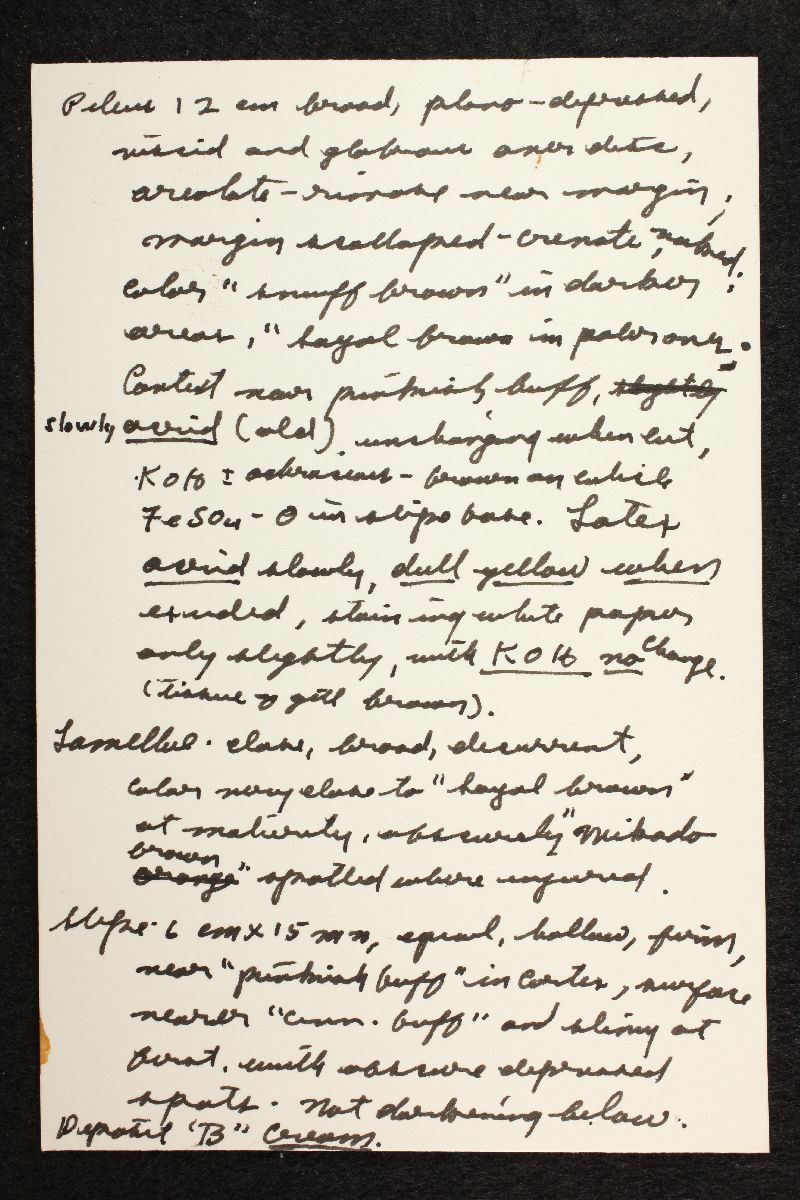 Pileus 12 cm broad, plano-depressed,
viscid and glabrous over disc,
areolate-rimose near margin;
margin scalloped-crenate, naked;
color "snuff brown" in darker
areas, "sayal brown in paler ones.
Context near pinkish buff, slightly
slowly acrid (old) unchanging when cut,
KOH ± ochraceous-brown on while
FeSO4 - O in stipe base. Latex
acrid slowly, dull yellow when
exuded, staining white paper
only slightly, with KOH no change.
(tissue of gill brown).
Lamellae close, broad, decurrent,
color very close to "sayal brown"
at maturity, obscurely "Mikado
brown
orange" spotted where injured.
Stipe 6 cm x 15 mm, equal, hollow, firm,
near "pinkish buff" in cortex, surface
nearer "cinn. buff" and slimy at
first, with obscure depressed
spots. Not darkening below.
Deposit "B" Cream.